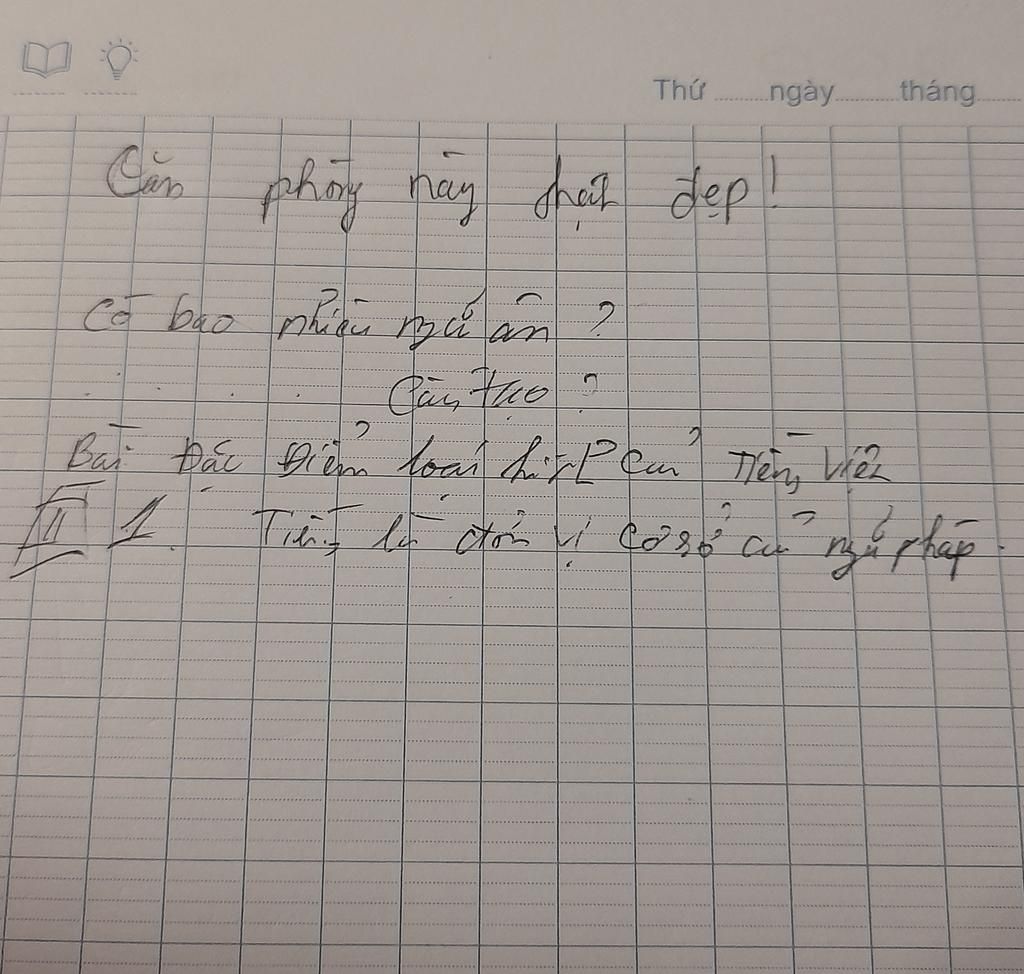 Thứ ........ngày.........tháng......
Căn phòng này thật đẹp!
Có bao nhiêu ngữ âm ?
Cấu tạo ?
Bài Đặc Điểm loại hình của Tiếng Việt
II 1. Tiếng là đơn vị cơ sở của ngữ pháp.